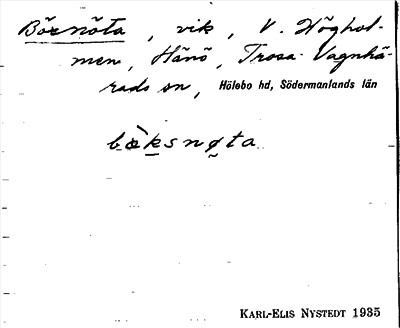 Böxnöta, vik, V. Höghol-
men, Hånö, Trosa-Vagnhä-
rads sn, Hölebo hd, Södermanlands län
bø̀ksnøta
KARL-ELIS NYSTEDT 1935